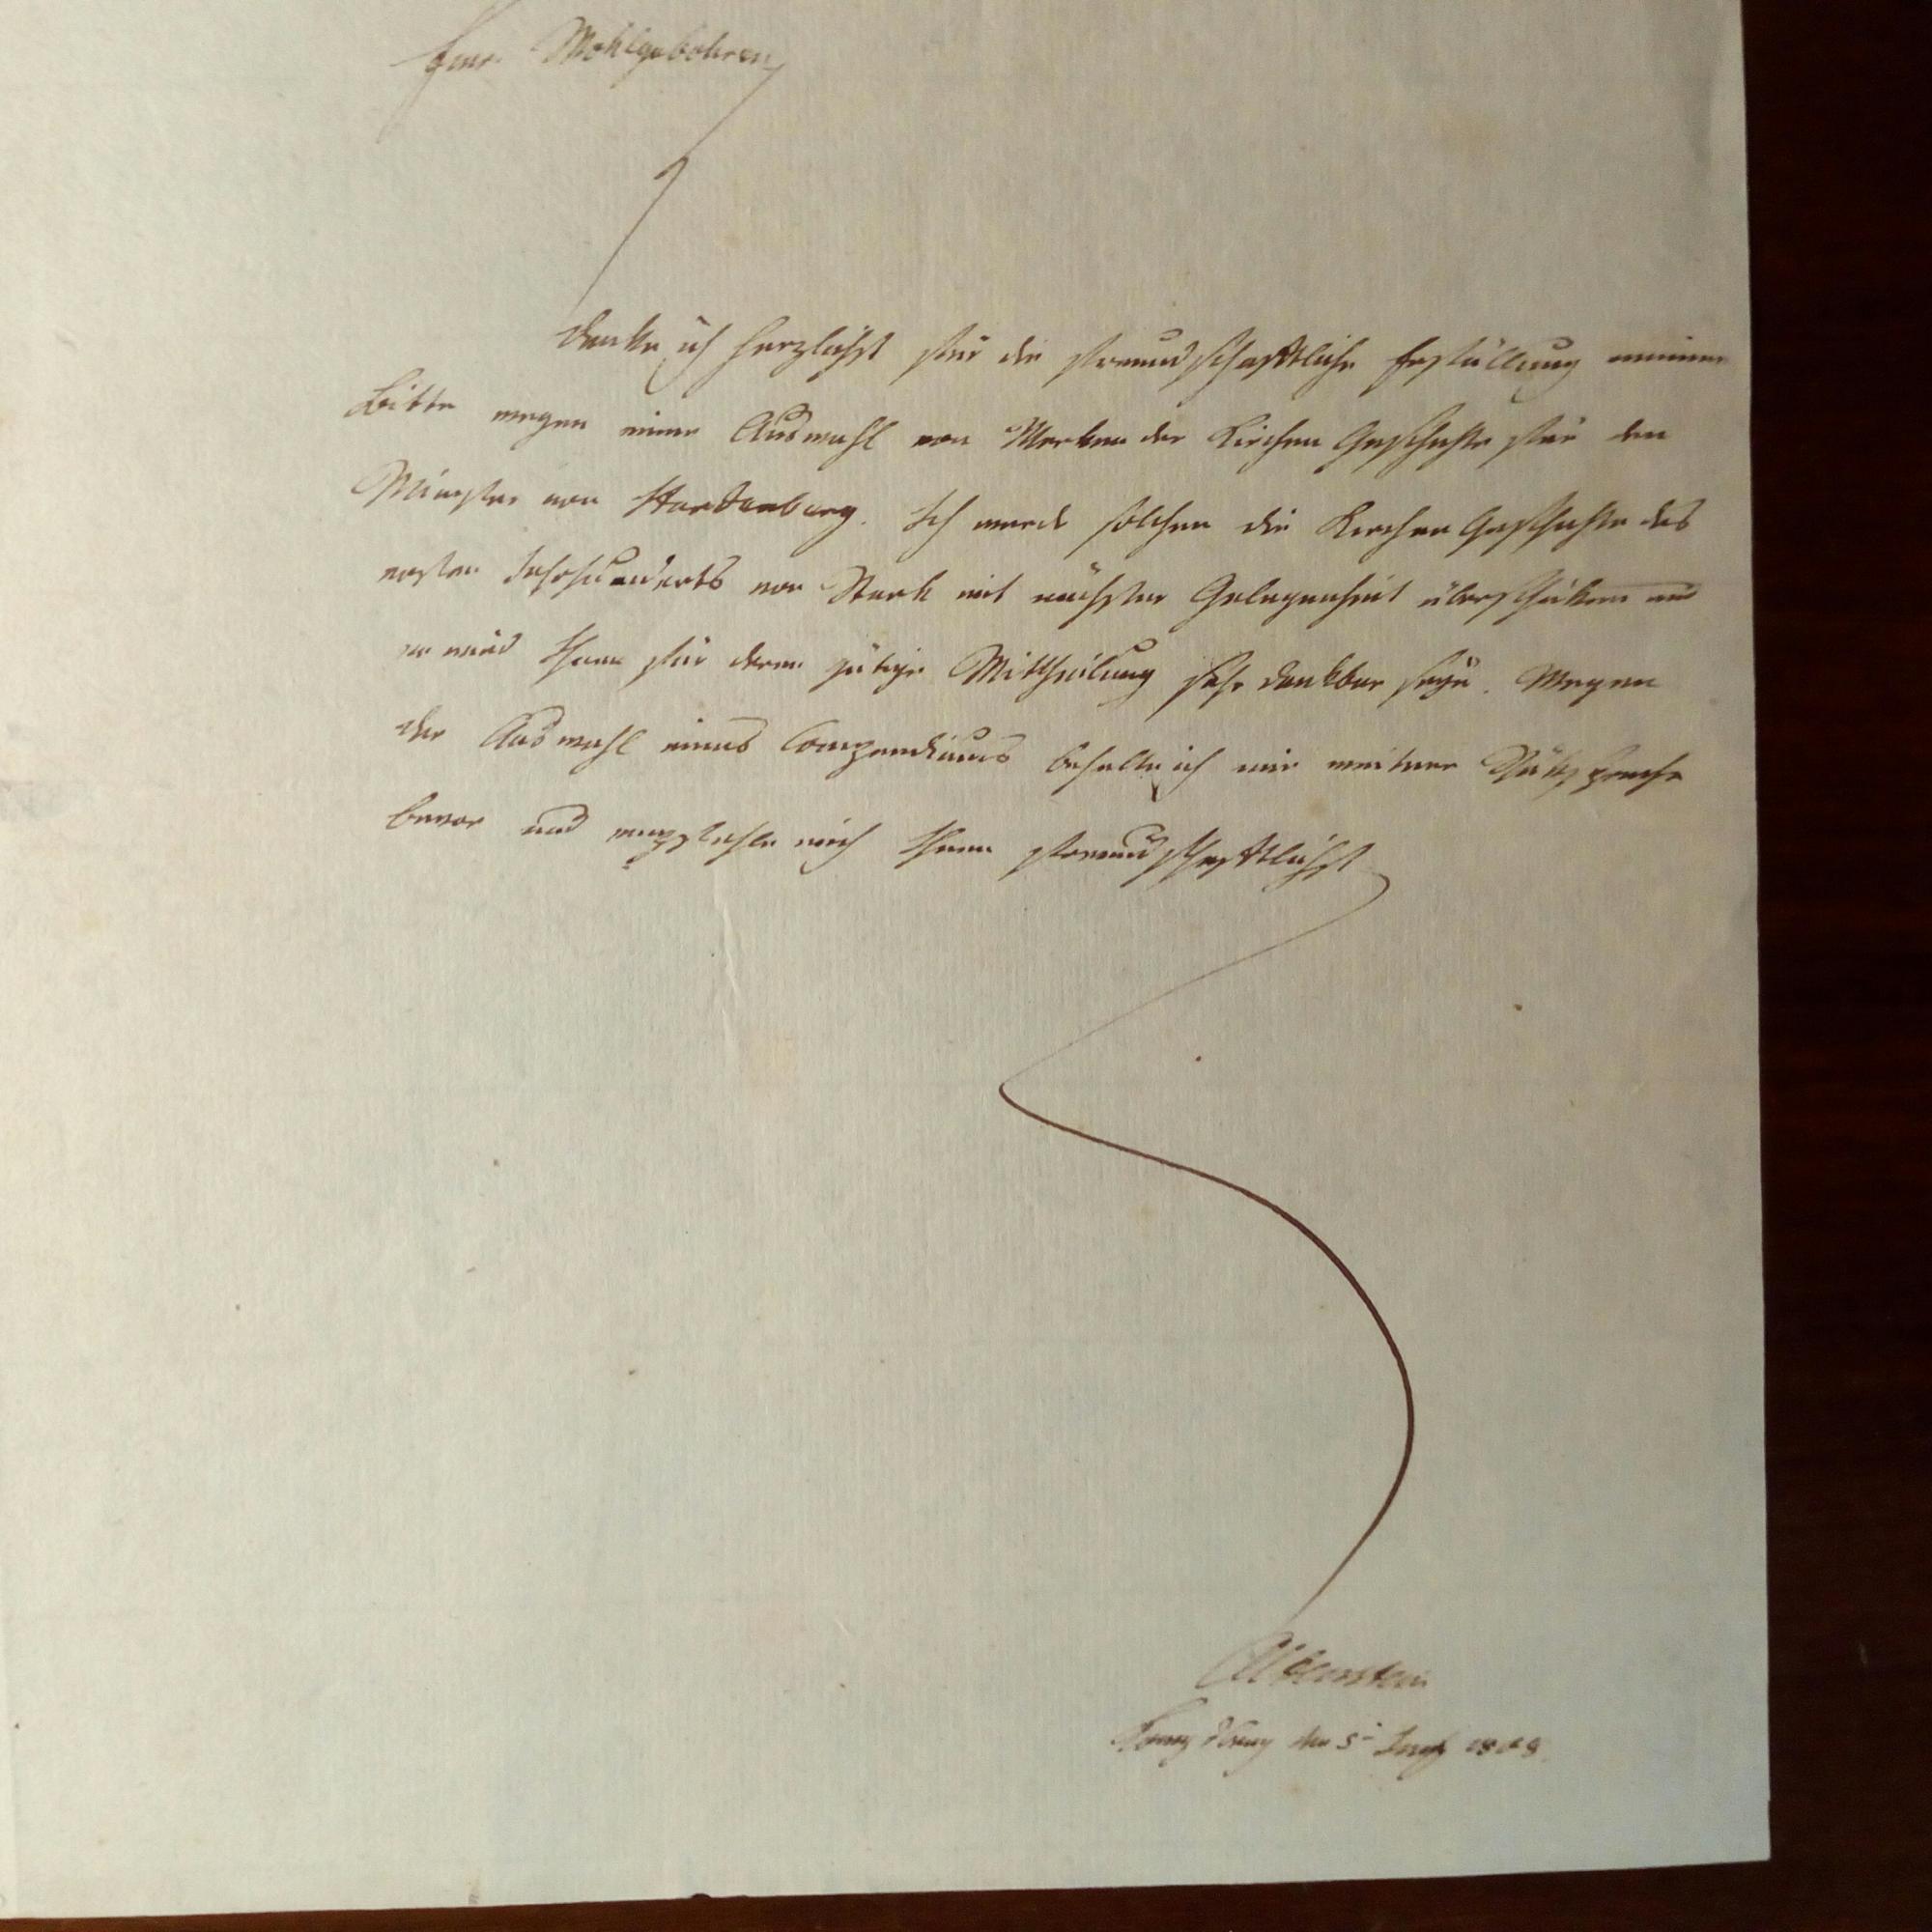 Euer Wohlgebohren
danke ich herzlichst für die freundschaftliche Erfüllung meiner
Bitte wegen einer Auswahl von Werken der Kirchen Geschichte für den
Minister von Hardenberg. Ich werde solchem die Kirchen Geschichte des
ersten Jahrhunderts von Stark mit nächster Gelegenheit überschicken und
er wird Ihnen für deren gütige Mittheilung sehr dankbar seyn. Wegen
der Auswahl eines Compendiums behalte ich mir weitere Rücksprache
bevor und empfehle mich Ihnen freundschaftlichst
Altenstein
Königsberg den 5 1808